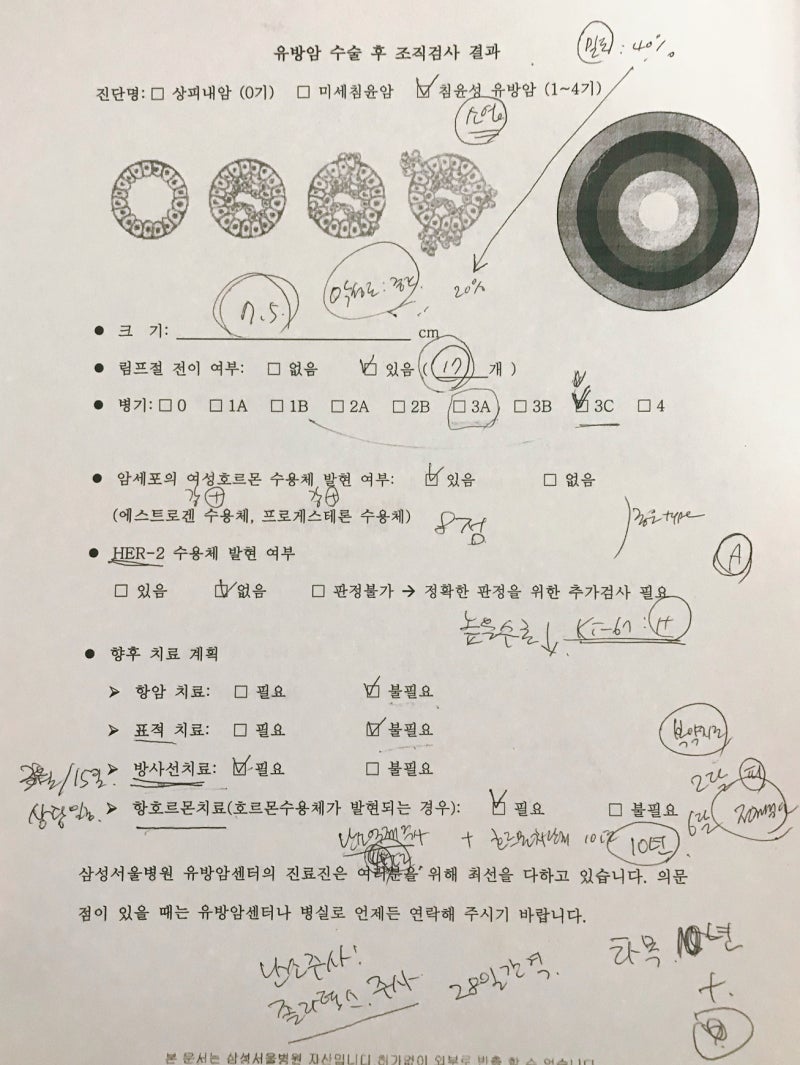 유방암 수술 후 조직검사 결과
밀도 : 40%
진단명: □ 상피내암 (0기) □ 미세침윤암 ☑ 침윤성 유방암 (1~4기)
소엽
20%
7.5
● 크 기: cm
● 림프절 전이 여부: □ 없음 ☑ 있음 ( 17 개 )
● 병기: □ 0 □ 1A □ 1B □ 2A □ 2B □ 3A □ 3B ☑ 3C □ 4
● 암세포의 여성호르몬 수용체 발현 여부: ☑ 있음 □ 없음
강 + 강 +
(에스트로겐 수용체, 프로게스테론 수용체)
8점
type
A
● HER-2 수용체 발현 여부
□ 있음 ☑ 없음 □ 판정불가 → 정확한 판정을 위한 추가검사 필요
높을수록 ↓ Ki-67 :
● 향후 치료 계획
➤ 항암 치료: □ 필요 ☑ 불필요
➤ 표적 치료: □ 필요 ☑ 불필요
➤ 방사선치료: ☑ 필요 □ 불필요
/15일
➤ 항호르몬치료(호르몬수용체가 발현되는 경우): ☑ 필요 □ 불필요
2달 피
6달
난소억제주사 + 10년 10년
삼성서울병원 유방암센터의 진료진은 여러분을 위해 최선을 다하고 있습니다. 의문
점이 있을 때는 유방암센터나 병실로 언제든 연락해 주시기 바랍니다.
난소주사!
졸라덱스 주사 28일간격.
타목 10년
+
본 문서는 삼성서울병원 자산입니다 허가없이 외부로 반출 할 수 없습니다